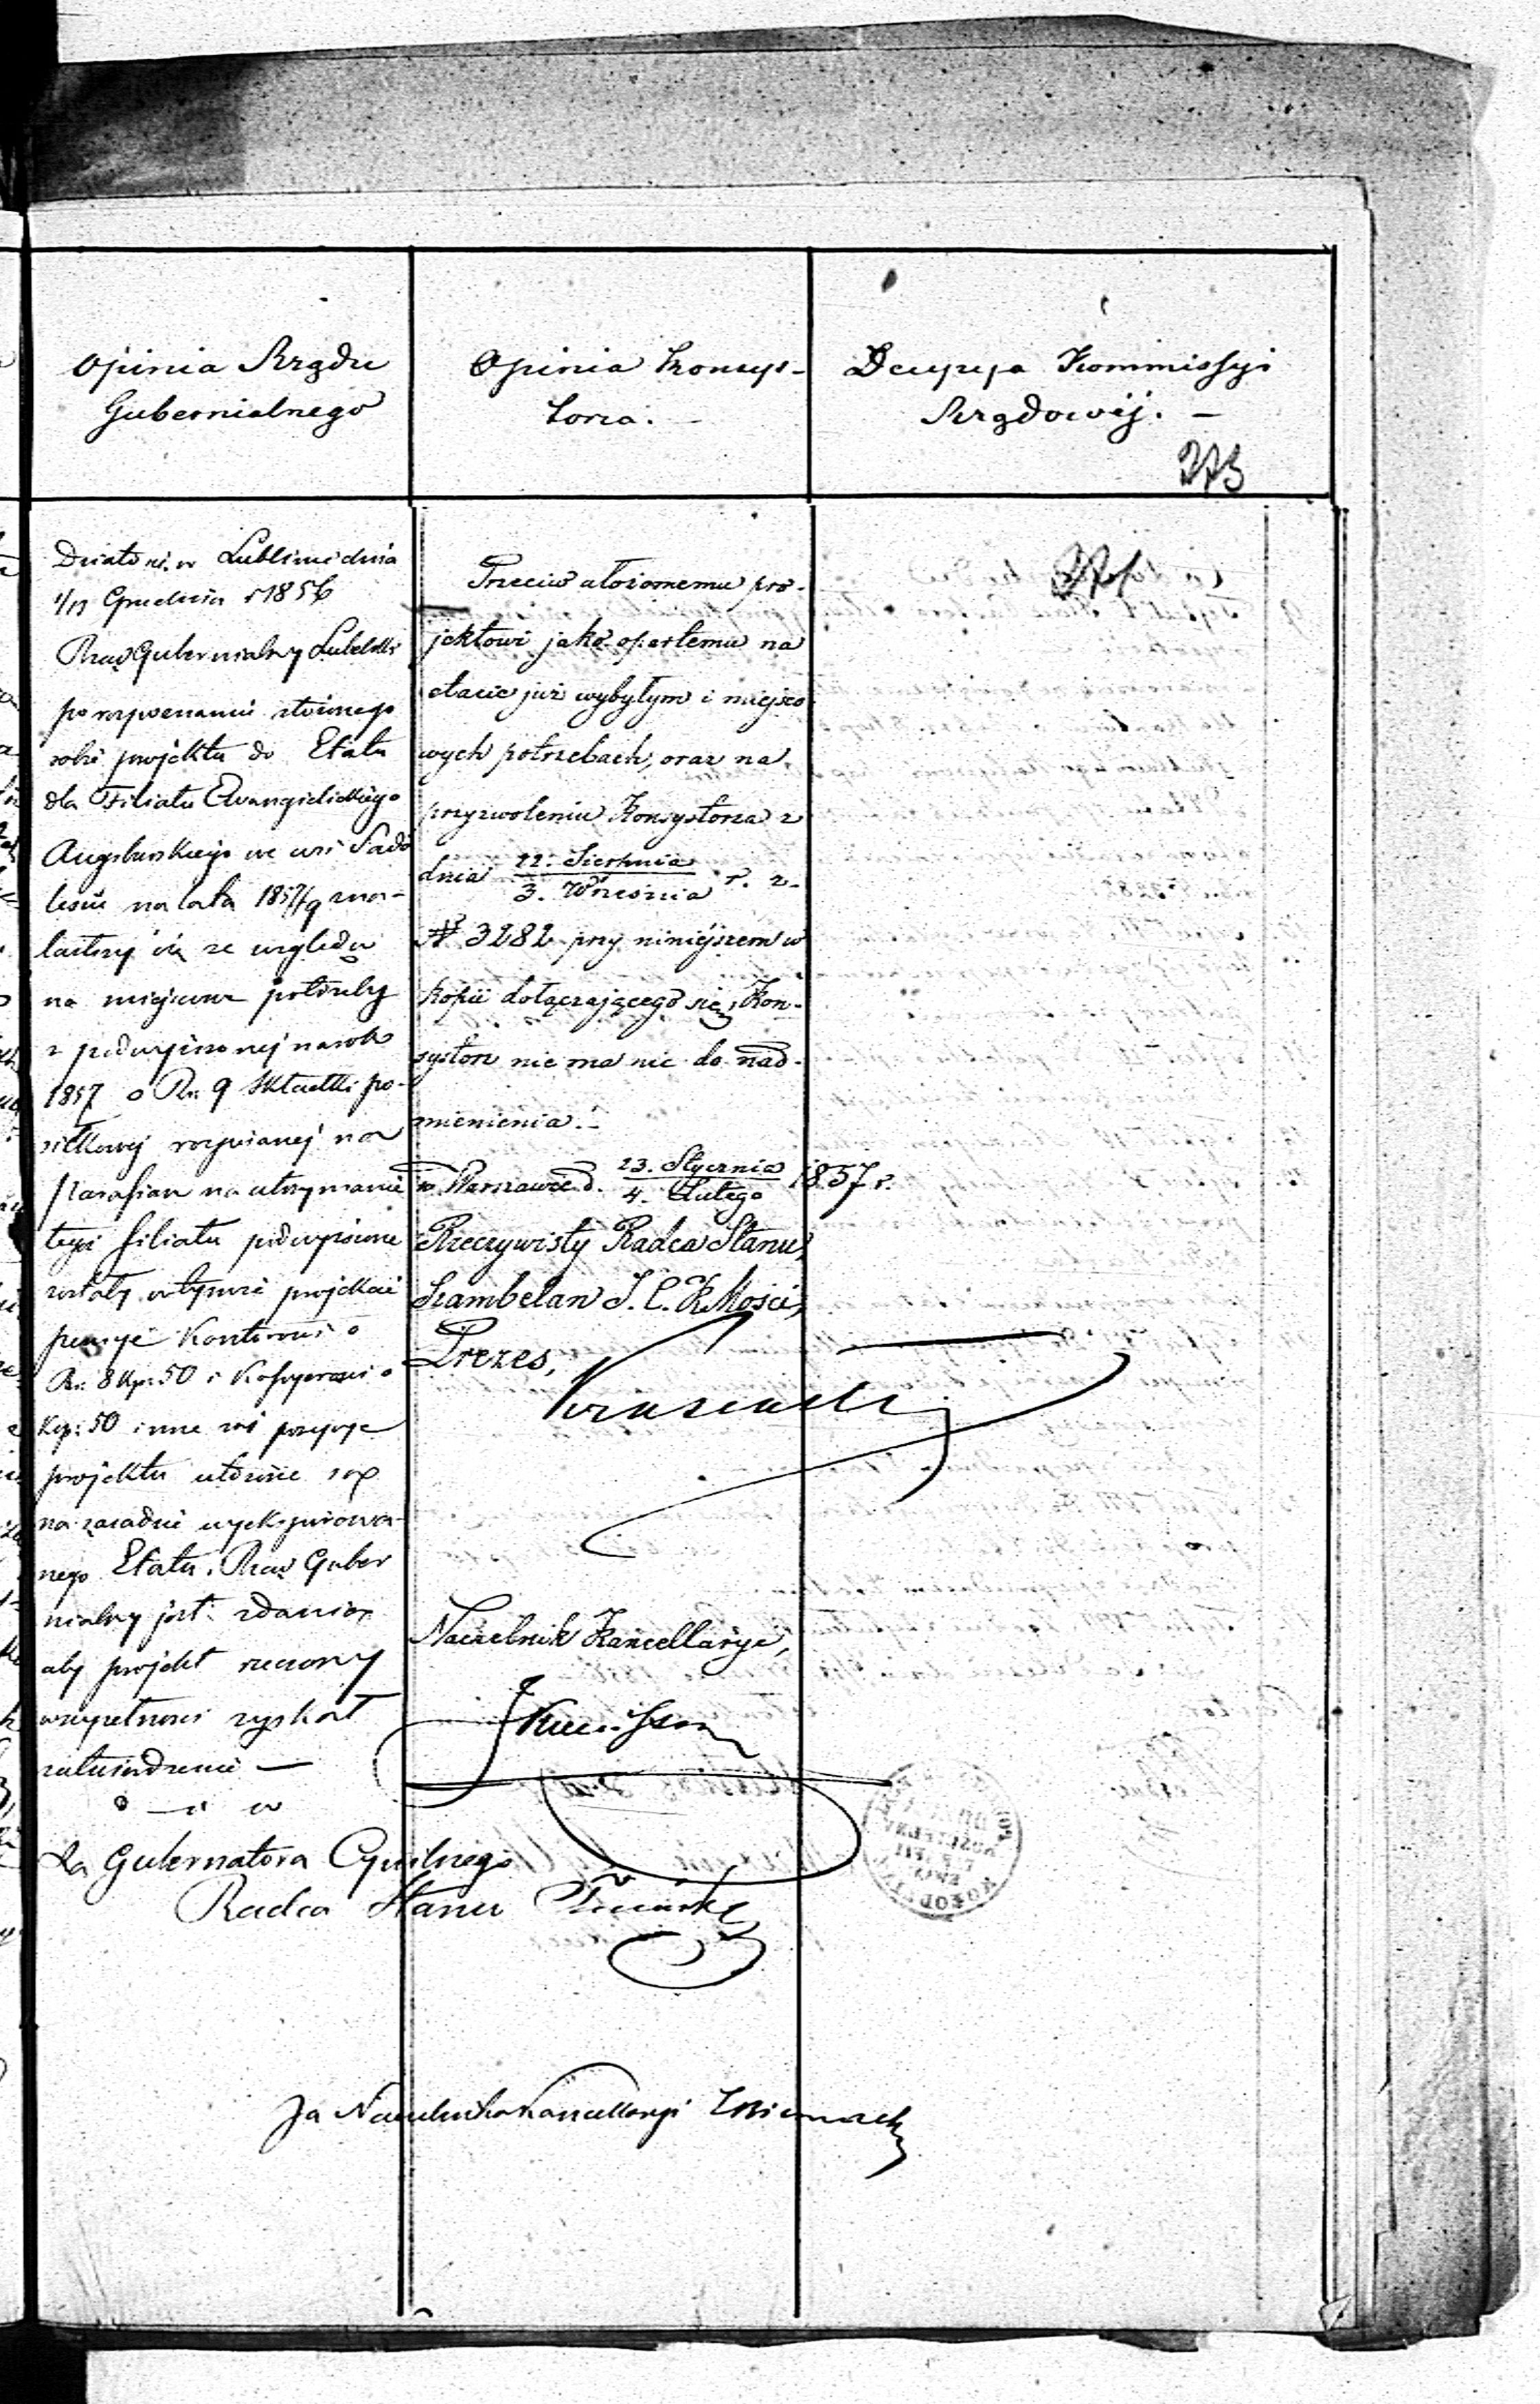 Opinia Rządu
Gubernialnego
Działo się w Lublinie dnia
1/13 Grudnia r 1856
Rząd Gubernialny Lubelski
po rozpoznaniu złożonego
sobie projektu do Etatu
dla Filiału Ewangielickiego
Augsburskiego we wsi Sado
lesiu na lata 1857/9 zna-
lazłszy iż ze względu
na miejscowe potrzeby
z podwyższonej na rok
1857 o Rs: 9 Składki po-
siłkowej rozpisanej na
Parafian na utrzymanie
tegoż filiału podwyższone
zostały w tymże projekcie
pensye Kantorowi o
Rs: 8 kp: 50 i
Kop: 50 inne zaś pozycye
projektu ułożone są
na zasadzie wyekspirowa-
nego Etatu, Rząd Guber
nialny jest zdania
aby projekt rzeczony
w zupełności zyskał
zatwierdzenie —
Za Gubernatora Cywilnego
Radca Stanu
Za Naczelnika Kancellaryi
Opinia Konsys-
torza. —
Przeciw ułożonemu pro-
jektowi jako opartemu na
etacie już wybyłym i miejsco
wych potrzebach, oraz na
przyzwoleniu Konsystorza z
dnia 22. Sierpnia / 3. Września r. z.
№ 3282 przy niniejszem w
kopii dołączającego się, Kon-
systorz nie ma nic do nad-
mienienia. —
w Warszawie d. 23. Stycznia / 4. Lutego 1857 r.
Rzeczywisty Radca Stanu,
Szambelan J. C. K. Mości,
Prezes,
Naczelnik Kancellaryi,
Decyzya Kommissyi
Rządowéj. —
273